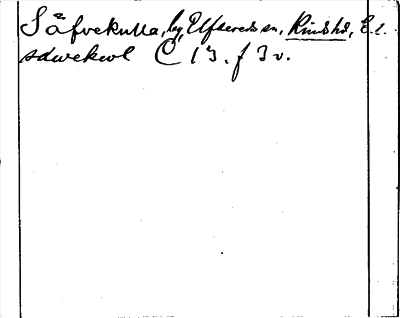 Säfvekulla, by, Ulfsereds sn, Kinds hd, E. l.
sdwekwl C 13. f 3 v.